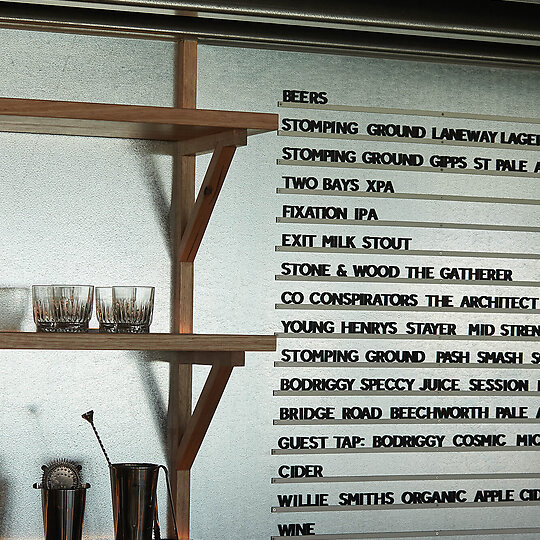 BEERS
STOMPING GROUND LANEWAY LAGER
STOMPING GROUND GIPPS ST PALE A
TWO BAYS XPA
FIXATION IPA
EXIT MILK STOUT
STONE & WOOD THE GATHERER
CO CONSPIRATORS THE ARCHITECT
YOUNG HENRYS STAYER MID STREN
STOMPING GROUND PASH SMASH
BODRIGGY SPECCY JUICE SESSION
BRIDGE ROAD BEECHWORTH PALE A
GUEST TAP: BODRIGGY COSMIC MIC
CIDER
WILLIE SMITHS ORGANIC APPLE CID
WINE